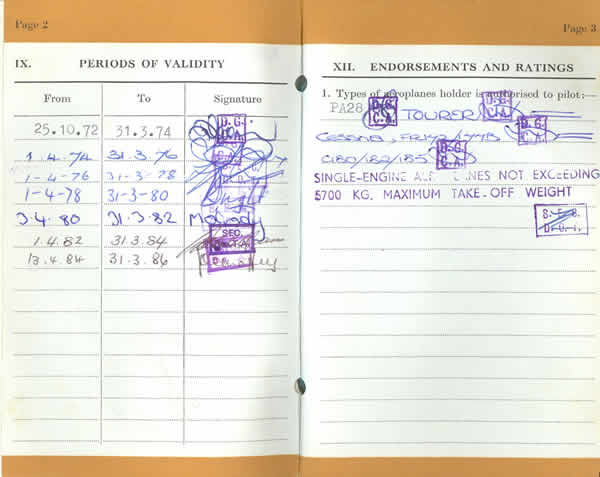 Page 2
IX. PERIODS OF VALIDITY
From To Signature
25.10.72 31.3.74 D.G. C.A.
1.4.74 31.3.76
1-4-76 31-3-78
1-4-78 31-3-80
3.4.80 31.3.82
1.4.82 31.3.84 SFO.
13.4.84 31.3.86
Page 3
XII. ENDORSEMENTS AND RATINGS
1. Types of aeroplanes holder is authorised to pilot:—
PA28 D.G. C.A. TOURER D.G. C.A.
CESSNA, D.G. C.A.
C180/182/185 D.G. C.A.
SINGLE-ENGINE NES NOT EXCEEDING
5700 KG. MAXIMUM TAKE-OFF WEIGHT